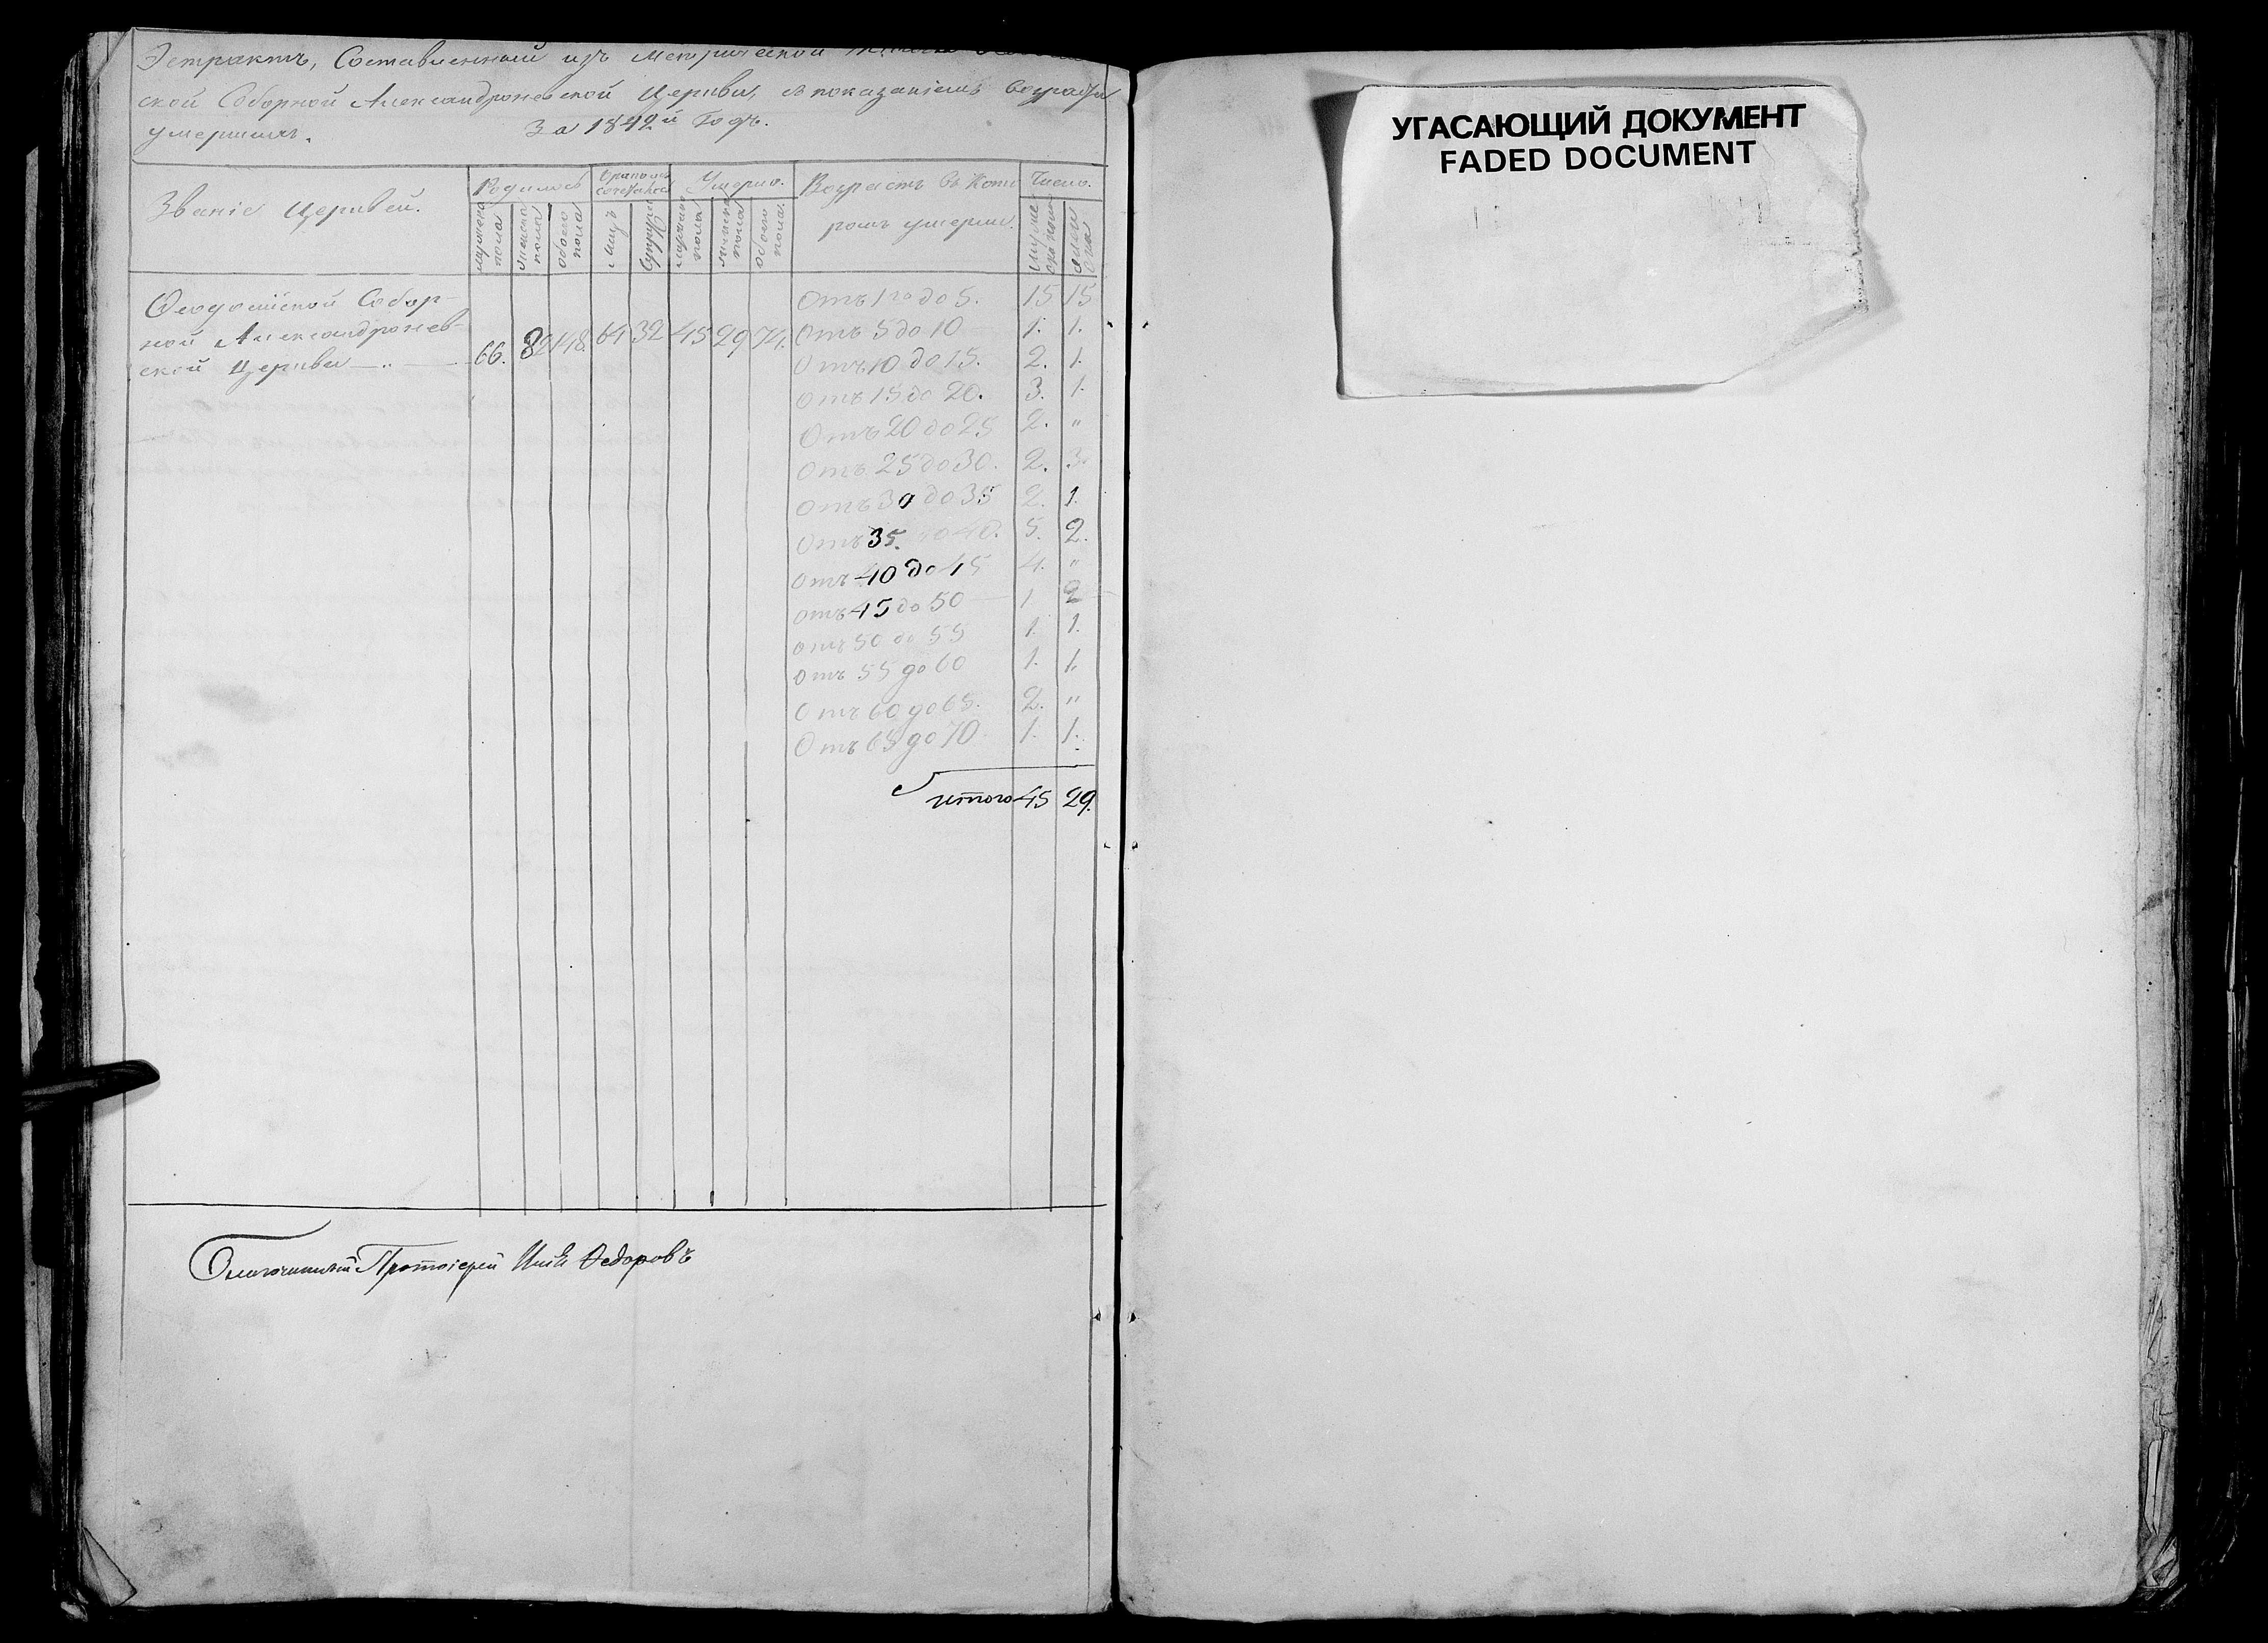 Эстрактъ, Составленный изъ метрической
ской Соборной Александроневской Церкви, съ показаніемъ возраста
умершихъ. За 1842й Годъ.
Званіе Церквей.
Родилось
мужеска пола
женска пола
обоего пола
бракомъ сочеталось
лицъ
супруж
Умерло.
мужеска пола
женска пола
обоего пола.
Возрастъ въ кото
ромъ умерли.
Число.
мужеска пола
женска
Ѳеодосійской Собор-
ной Александронев-
ской Церкви — „ —
66. 82 148. 64 32 45 29 74.
Отъ 1го до 5. 15 15
Отъ 5 до 10 1. 1.
Отъ 10 до 15. 2. 1.
Отъ 15 до 20. 3. 1.
Отъ 20 до 25 2. „
Отъ 25 до 30. 2. 3.
Отъ 30 до 35 2. 1.
Отъ 35. до 40. 5. 2.
Отъ 40 до 45 4. „
Отъ 45 до 50 1 2
Отъ 50 до 55 1. 1.
Отъ 55 до 60 1. 1.
Отъ 60 до 65. 2. „
Отъ 65 до 70 1. 1.
итого 45 29.
Благочинный Протоіерей Федоровъ
УГАСАЮЩИЙ ДОКУМЕНТ
FADED DOCUMENT